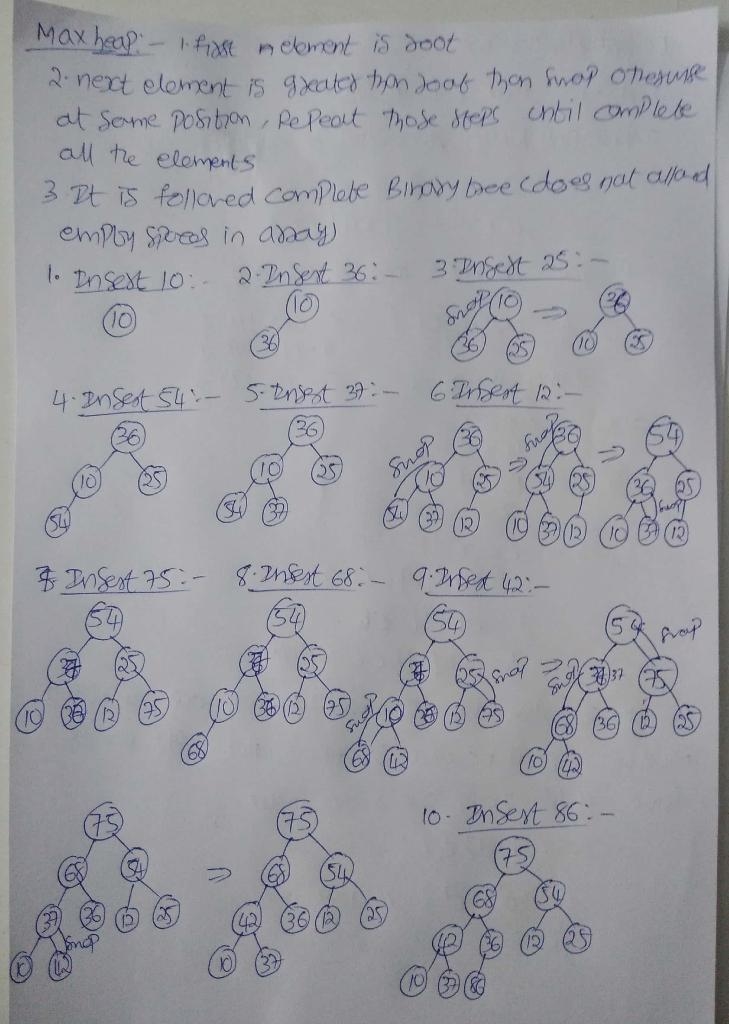 Max heap:- 1. first n element is root
2. next element is greater than root than swap otherwise
at same position, Repeat those steps until complete
all the elements
3. It is followed complete Binary tree (does not allowed
empty spaces in array)
1. Insert 10:- 2. Insert 36:- 3. Insert 25:-
10 10 swap 10 ⇒ 36
36 36 25 10 25
4. Insert 54:- 5. Insert 37:- 6. Insert 12:-
36 36 swap 36 ⇒ swap 36 ⇒ 54
10 25 10 25 10 25 54 25 36 25 swap
54 54 37 54 37 12 10 37 12 10 37 12
7. Insert 75:- 8. Insert 68:- 9. Insert 42:-
54 54 54 54 swap
37 25 37 25 37 25 swap ⇒ swap 37 75
10 36 12 75 10 36 12 75 swap 10 36 12 75 68 36 12 25
68 68 42 10 42
10. Insert 86:-
75 ⇒ 75 75
68 54 68 54 68 54
37 36 12 25 42 36 12 25 42 36 12 25
swap
10 42 10 37 10 37 86